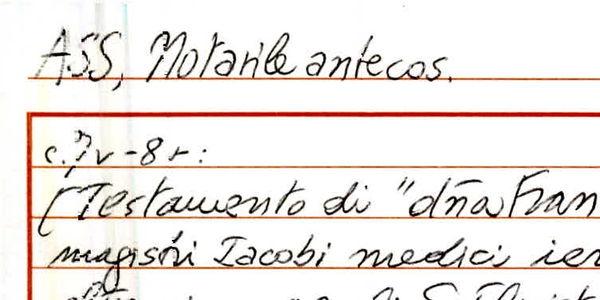 ASS, Notarile antecos.
c. 7v-8r:
[Testamento di "dña Fran
magistri Iacobi medici